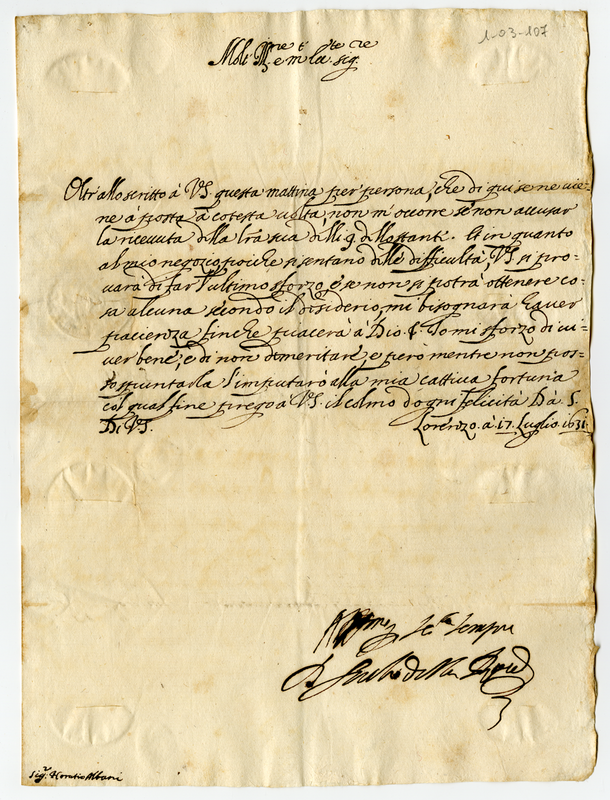 1-03-107
Molt' Ill.re et ecc.te sig.re
Oltr'allo scritto à VS. questa mattina per persona, che di qui se ne vie=
ne à posta à cotesta volta, non m'occore se non accusar
la ricevuta della l'ra sua delli 9. del stante. Et in quanto
al mio negozco, poiche si sentano delle difficultà, VS. si pro=
varà di far l'ultimo sforzo, e se non si potrà ottenere co=
sa alcuna secondo il disiderio, mi bisognarà haver
pacienza finche piacerà à Dio. Io mi sforzo di vi=
ver bene, e di non demeritare, e però mentre non pos=
so spuntarla l'imputarò alla mia cattiva fortuna
col qual fine prego à VS. il colmo d'ogni felicità Da S.
Lorenzo. à 17. Luglio. 1631.
Di VS.
Aff.mo se.re sempre
Giulio della
Sig.r Horatio Albani